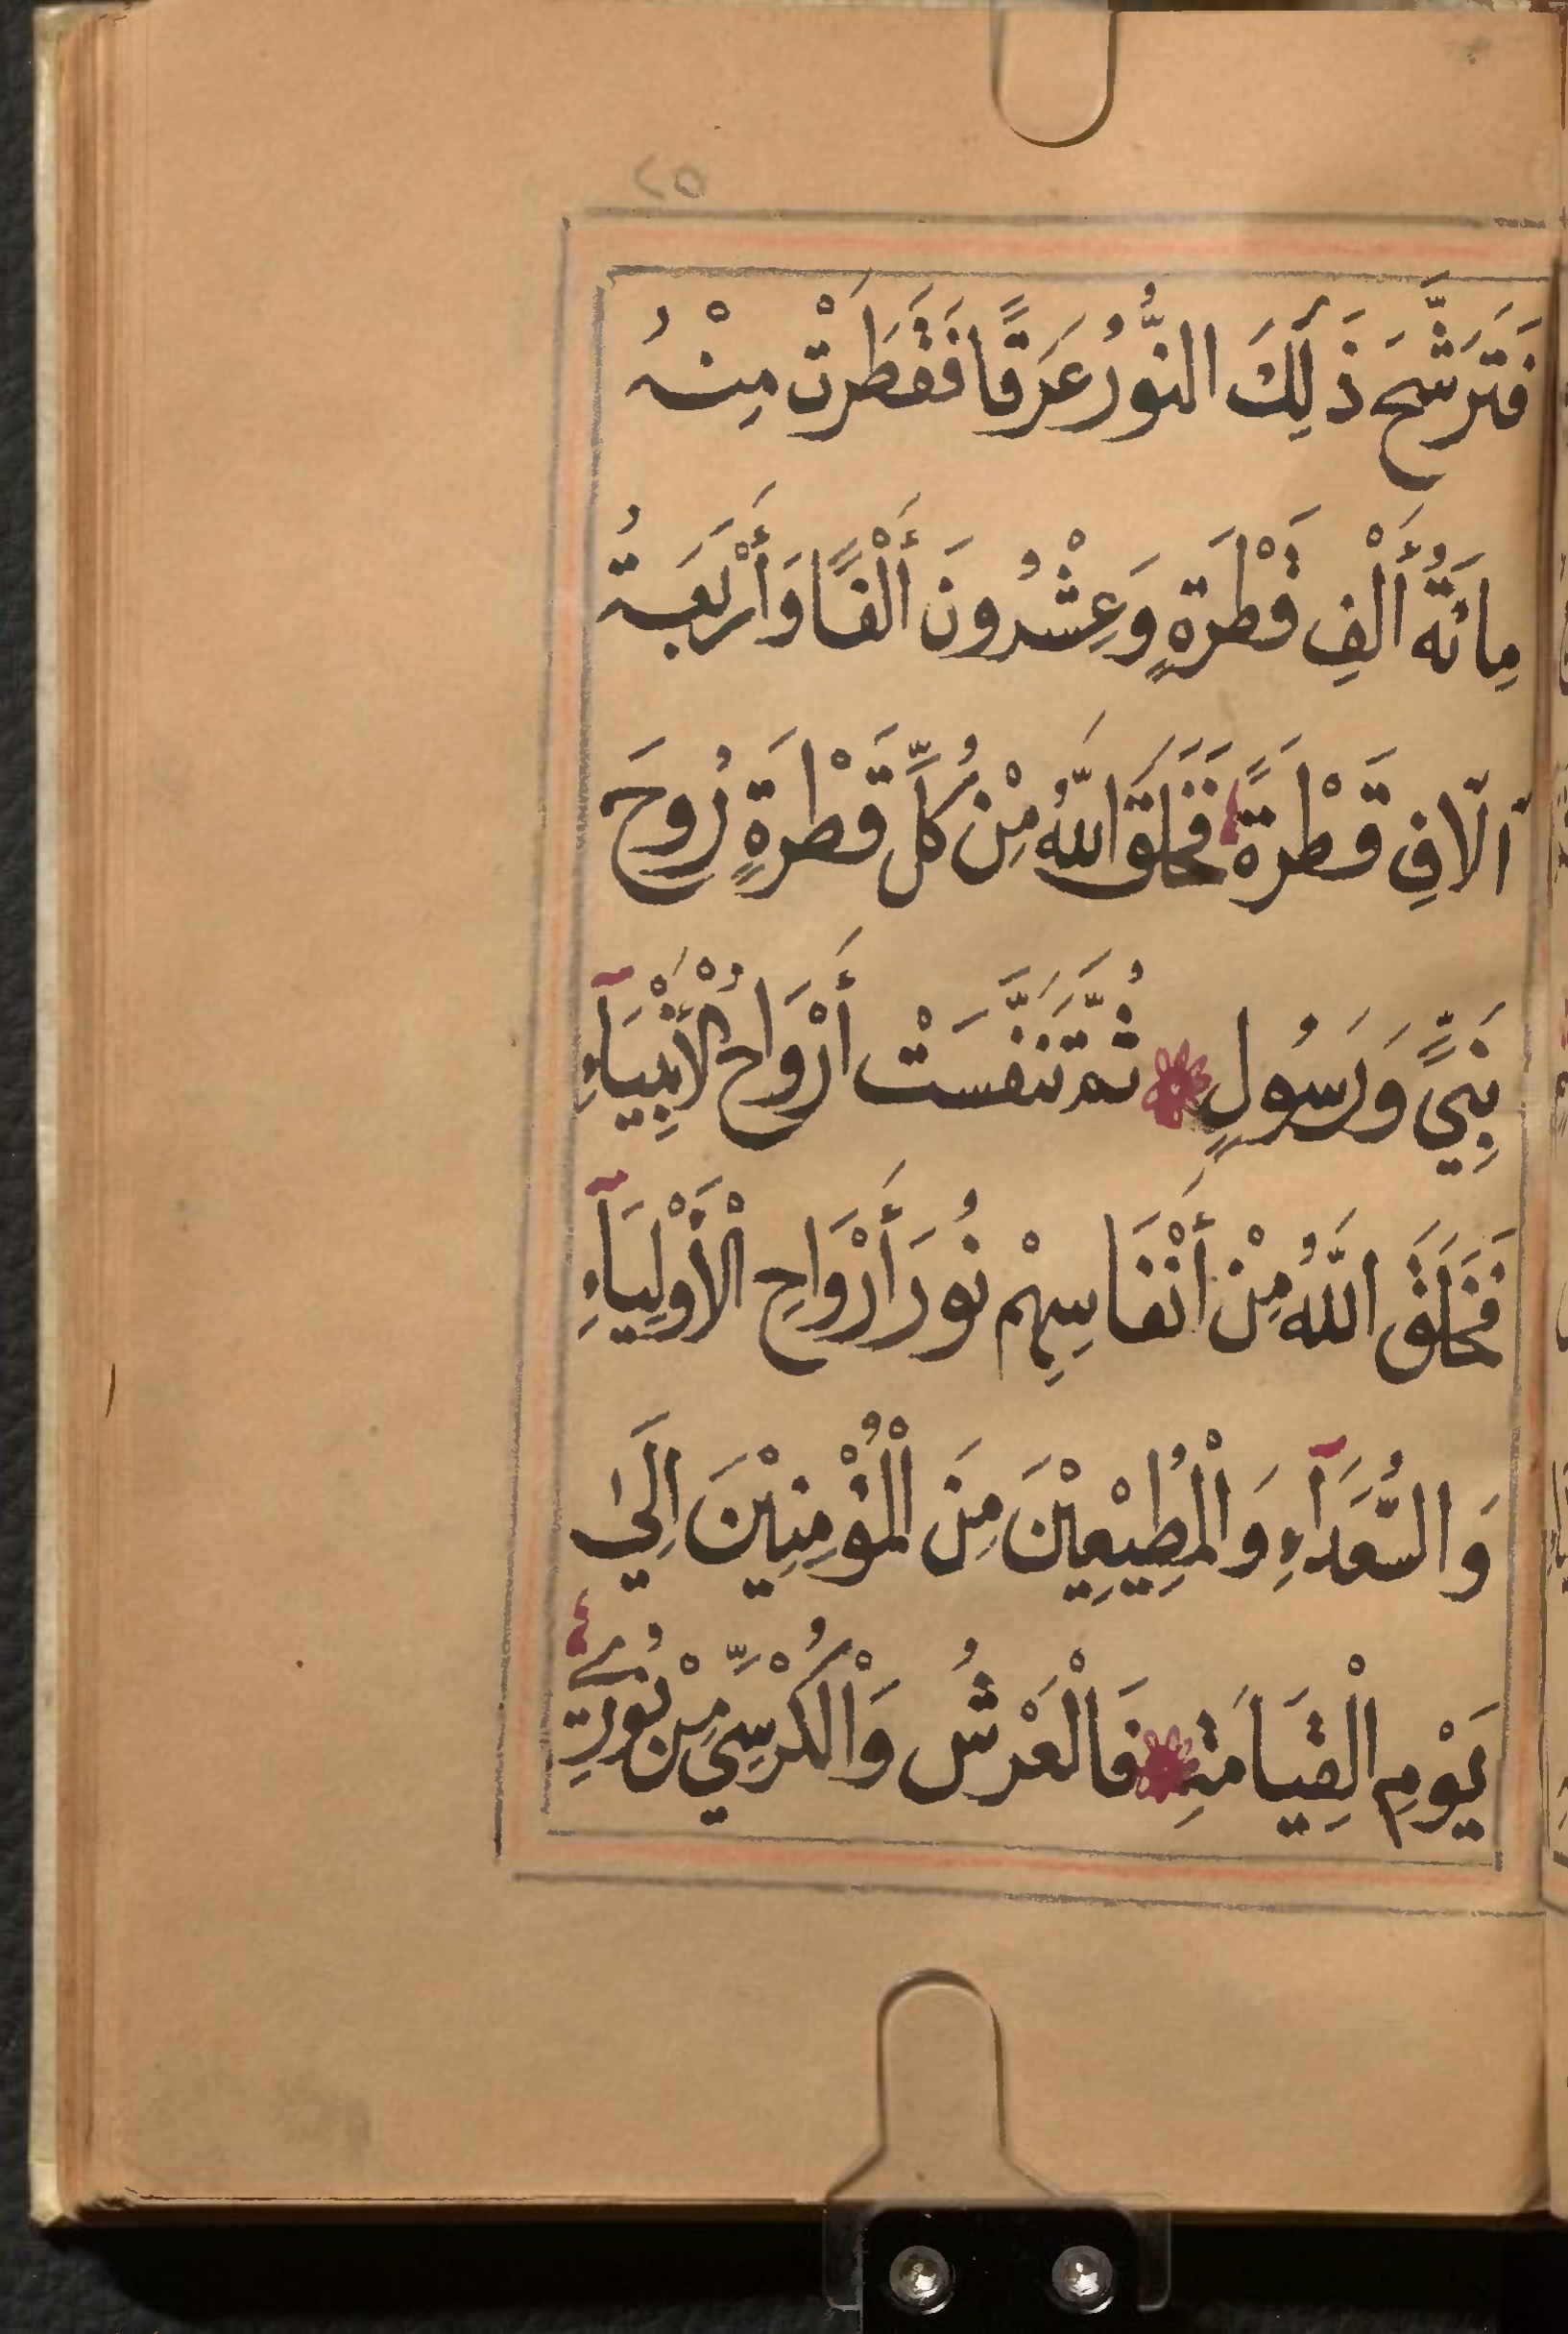 ٢٥
فَتَرَشَّحَ ذَٰلِكَ النُّورُ عَرَقًا فَقَطَرَتْ مِنْهُ
مِائَةُ أَلْفِ قَطْرَةٍ وَعِشْرُونَ أَلْفًا وَأَرْبَعَةُ
آلَافِ قَطْرَةً فَخَلَقَ اللَّهُ مِنْ كُلِّ قَطْرَةٍ رُوحَ
نَبِيٍّ وَرَسُولٍ ثُمَّ تَنَفَّسَتْ أَرْوَاحُ الْأَنْبِيَآءِ
فَخَلَقَ اللَّهُ مِنْ أَنْفَاسِهِمْ نُورَ أَرْوَاحِ الْأَوْلِيَآءِ
وَالسُّعَدَآءِ وَالْمُطِيْعِيْنَ مِنَ الْمُؤْمِنِيْنَ اِلَىٰ
يَوْمِ الْقِيَامَةِ فَالْعَرْشُ وَالْكُرْسِيُّ مِنْ نُورِي